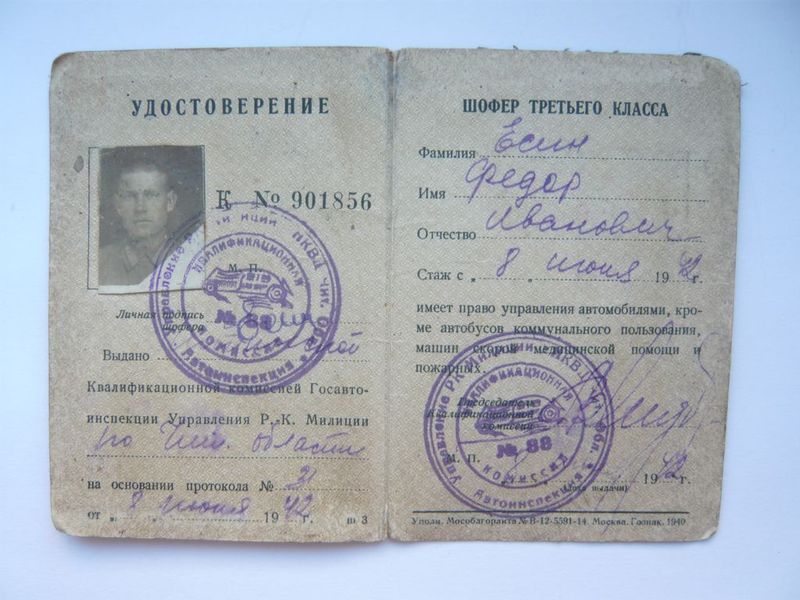 УДОСТОВЕРЕНИЕ
К № 901856
М. П.
Личная подпись
шофера
Выдано
Квалификационной комиссией Госавто-
инспекции Управления Р.-К. Милиции
по Чит. области
на основании протокола № 21
от „ 8 „ июня 1942 г.
ш 3
Управление НКВД Чит. Обл.
Автоинспекция
КВАЛИФИКАЦИОННАЯ
№ 88
КОМИССИЯ
ШОФЕР ТРЕТЬЕГО КЛАССА
Фамилия Есин
Имя Федор
Отчество Иванович
Стаж с „ 8 „ июня 1942 г.
имеет право управления автомобилями, кро-
ме автобусов коммунального пользования,
машин скорой медицинской помощи и
пожарных.
Председатель
Квалификационной
комиссии
М. П.
1942 г.
(дата выдачи)
Управление Р.К. Милиции НКВД Чит. Обл.
Автоинспекция
КВАЛИФИКАЦИОННАЯ
№ 88
КОМИССИЯ
Уполн. Мособлгорлита № В-12-5591-14. Москва. Гознак. 1940